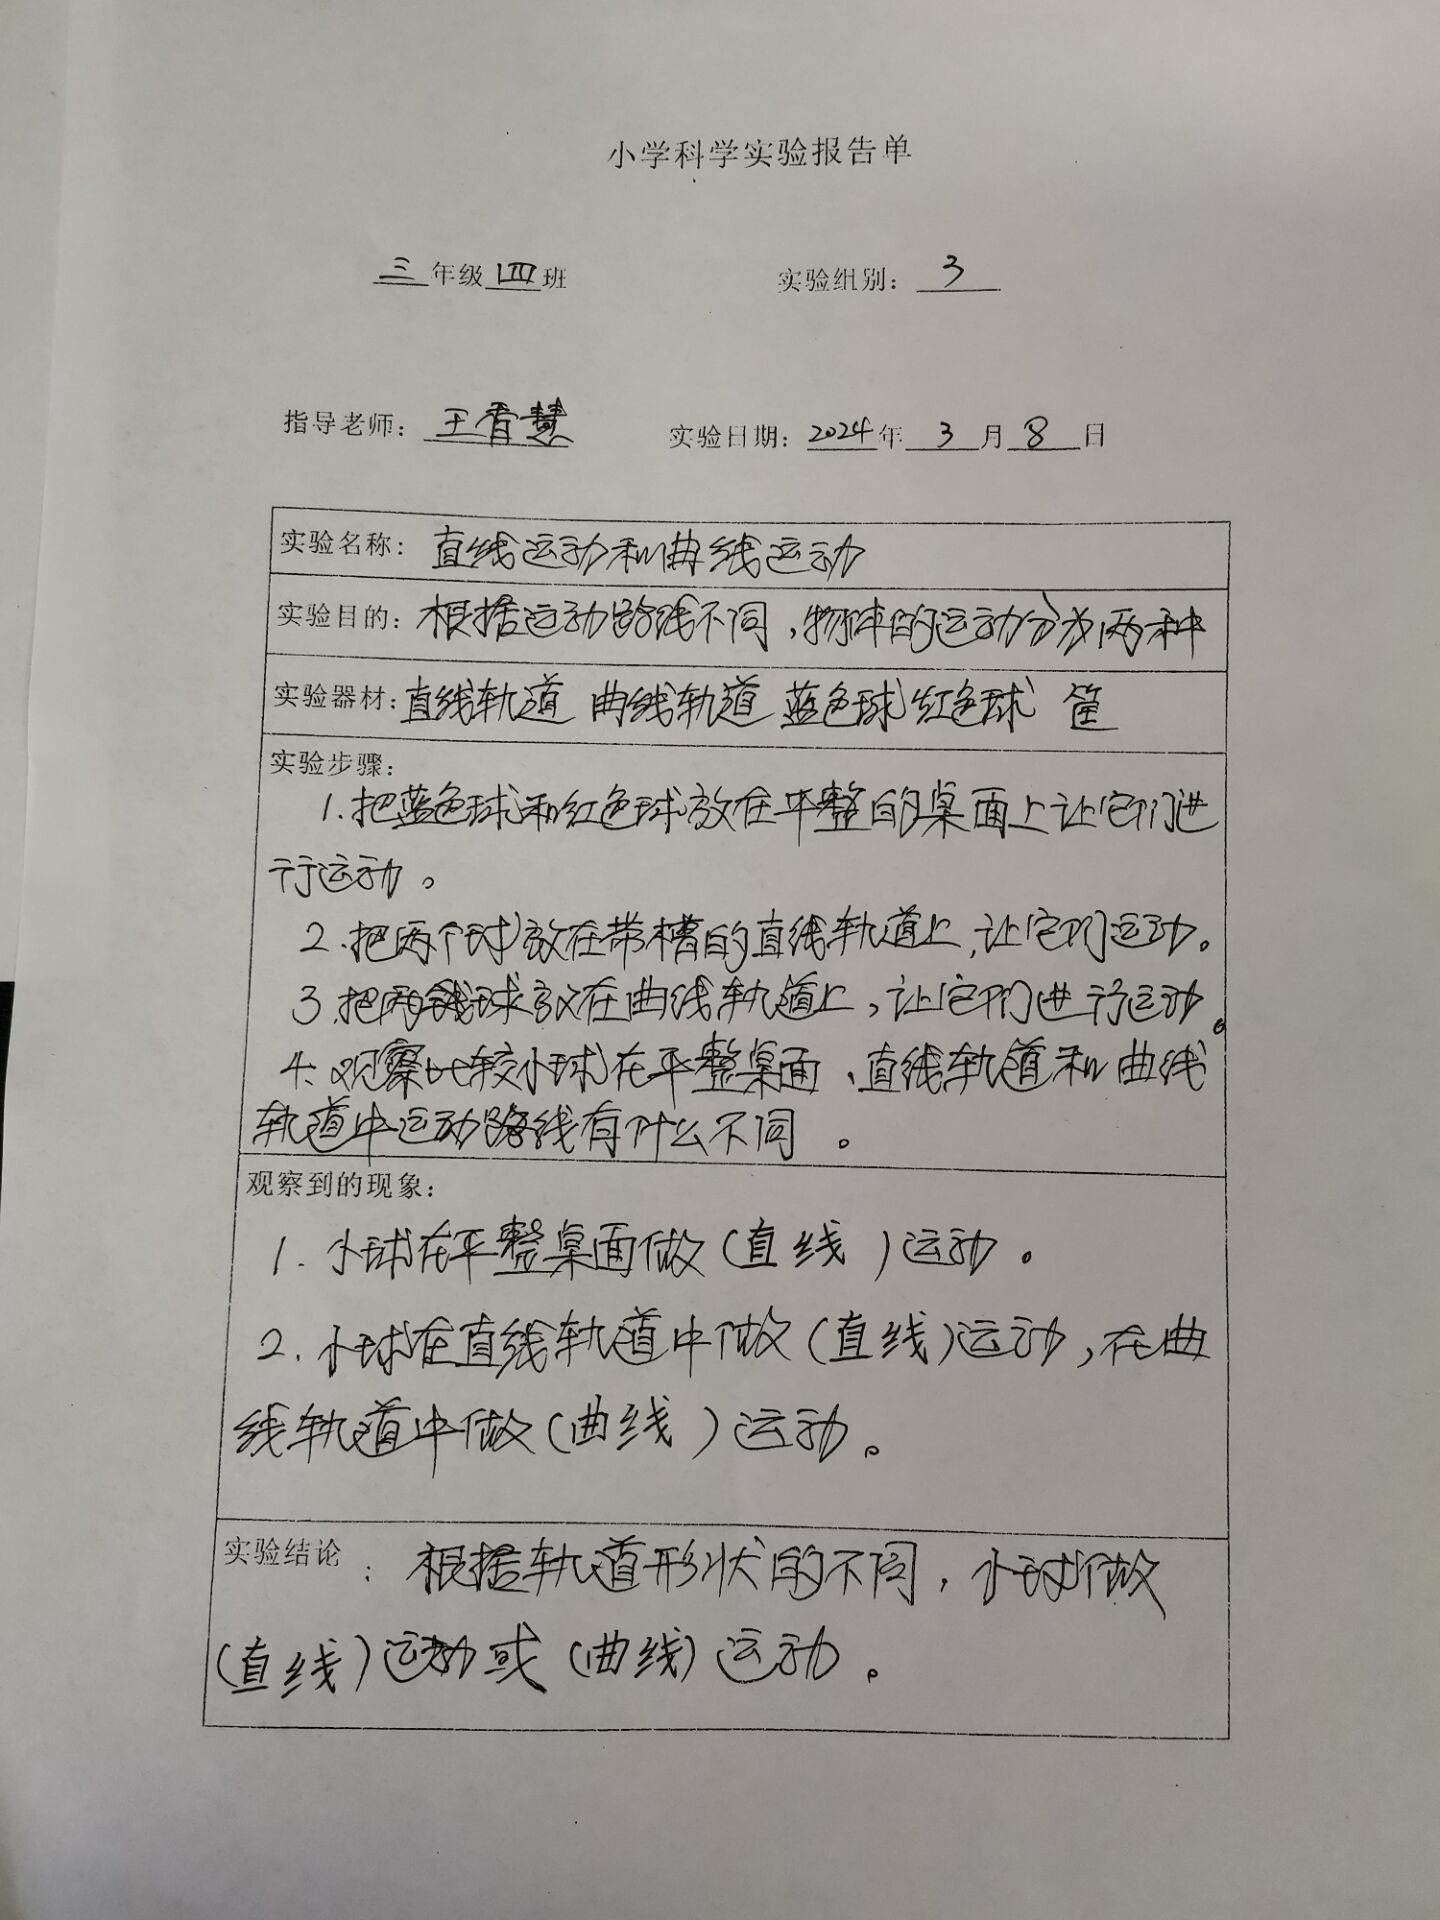 小学科学实验报告单
三年级四班 实验组别：3
指导老师：王香慧 实验日期：2024年3月8日
实验名称：直线运动和曲线运动
实验目的：根据运动路线不同，物体的运动分为两种
实验器材：直线轨道 曲线轨道 蓝色球 红色球 筐
实验步骤：
1.把蓝色球和红色球放在平整的桌面上让它们进
行运动。
2.把两个球放在带槽的直线轨道上，让它们运动。
3.把两球放在曲线轨道上，让它们进行运动。
4.观察比较小球在平整桌面、直线轨道和曲线
轨道中运动路线有什么不同。
观察到的现象：
1.小球在平整桌面做(直线)运动。
2.小球在直线轨道中做(直线)运动，在曲
线轨道中做(曲线)运动。
实验结论：根据轨道形状的不同，小球做
(直线)运动或(曲线)运动。